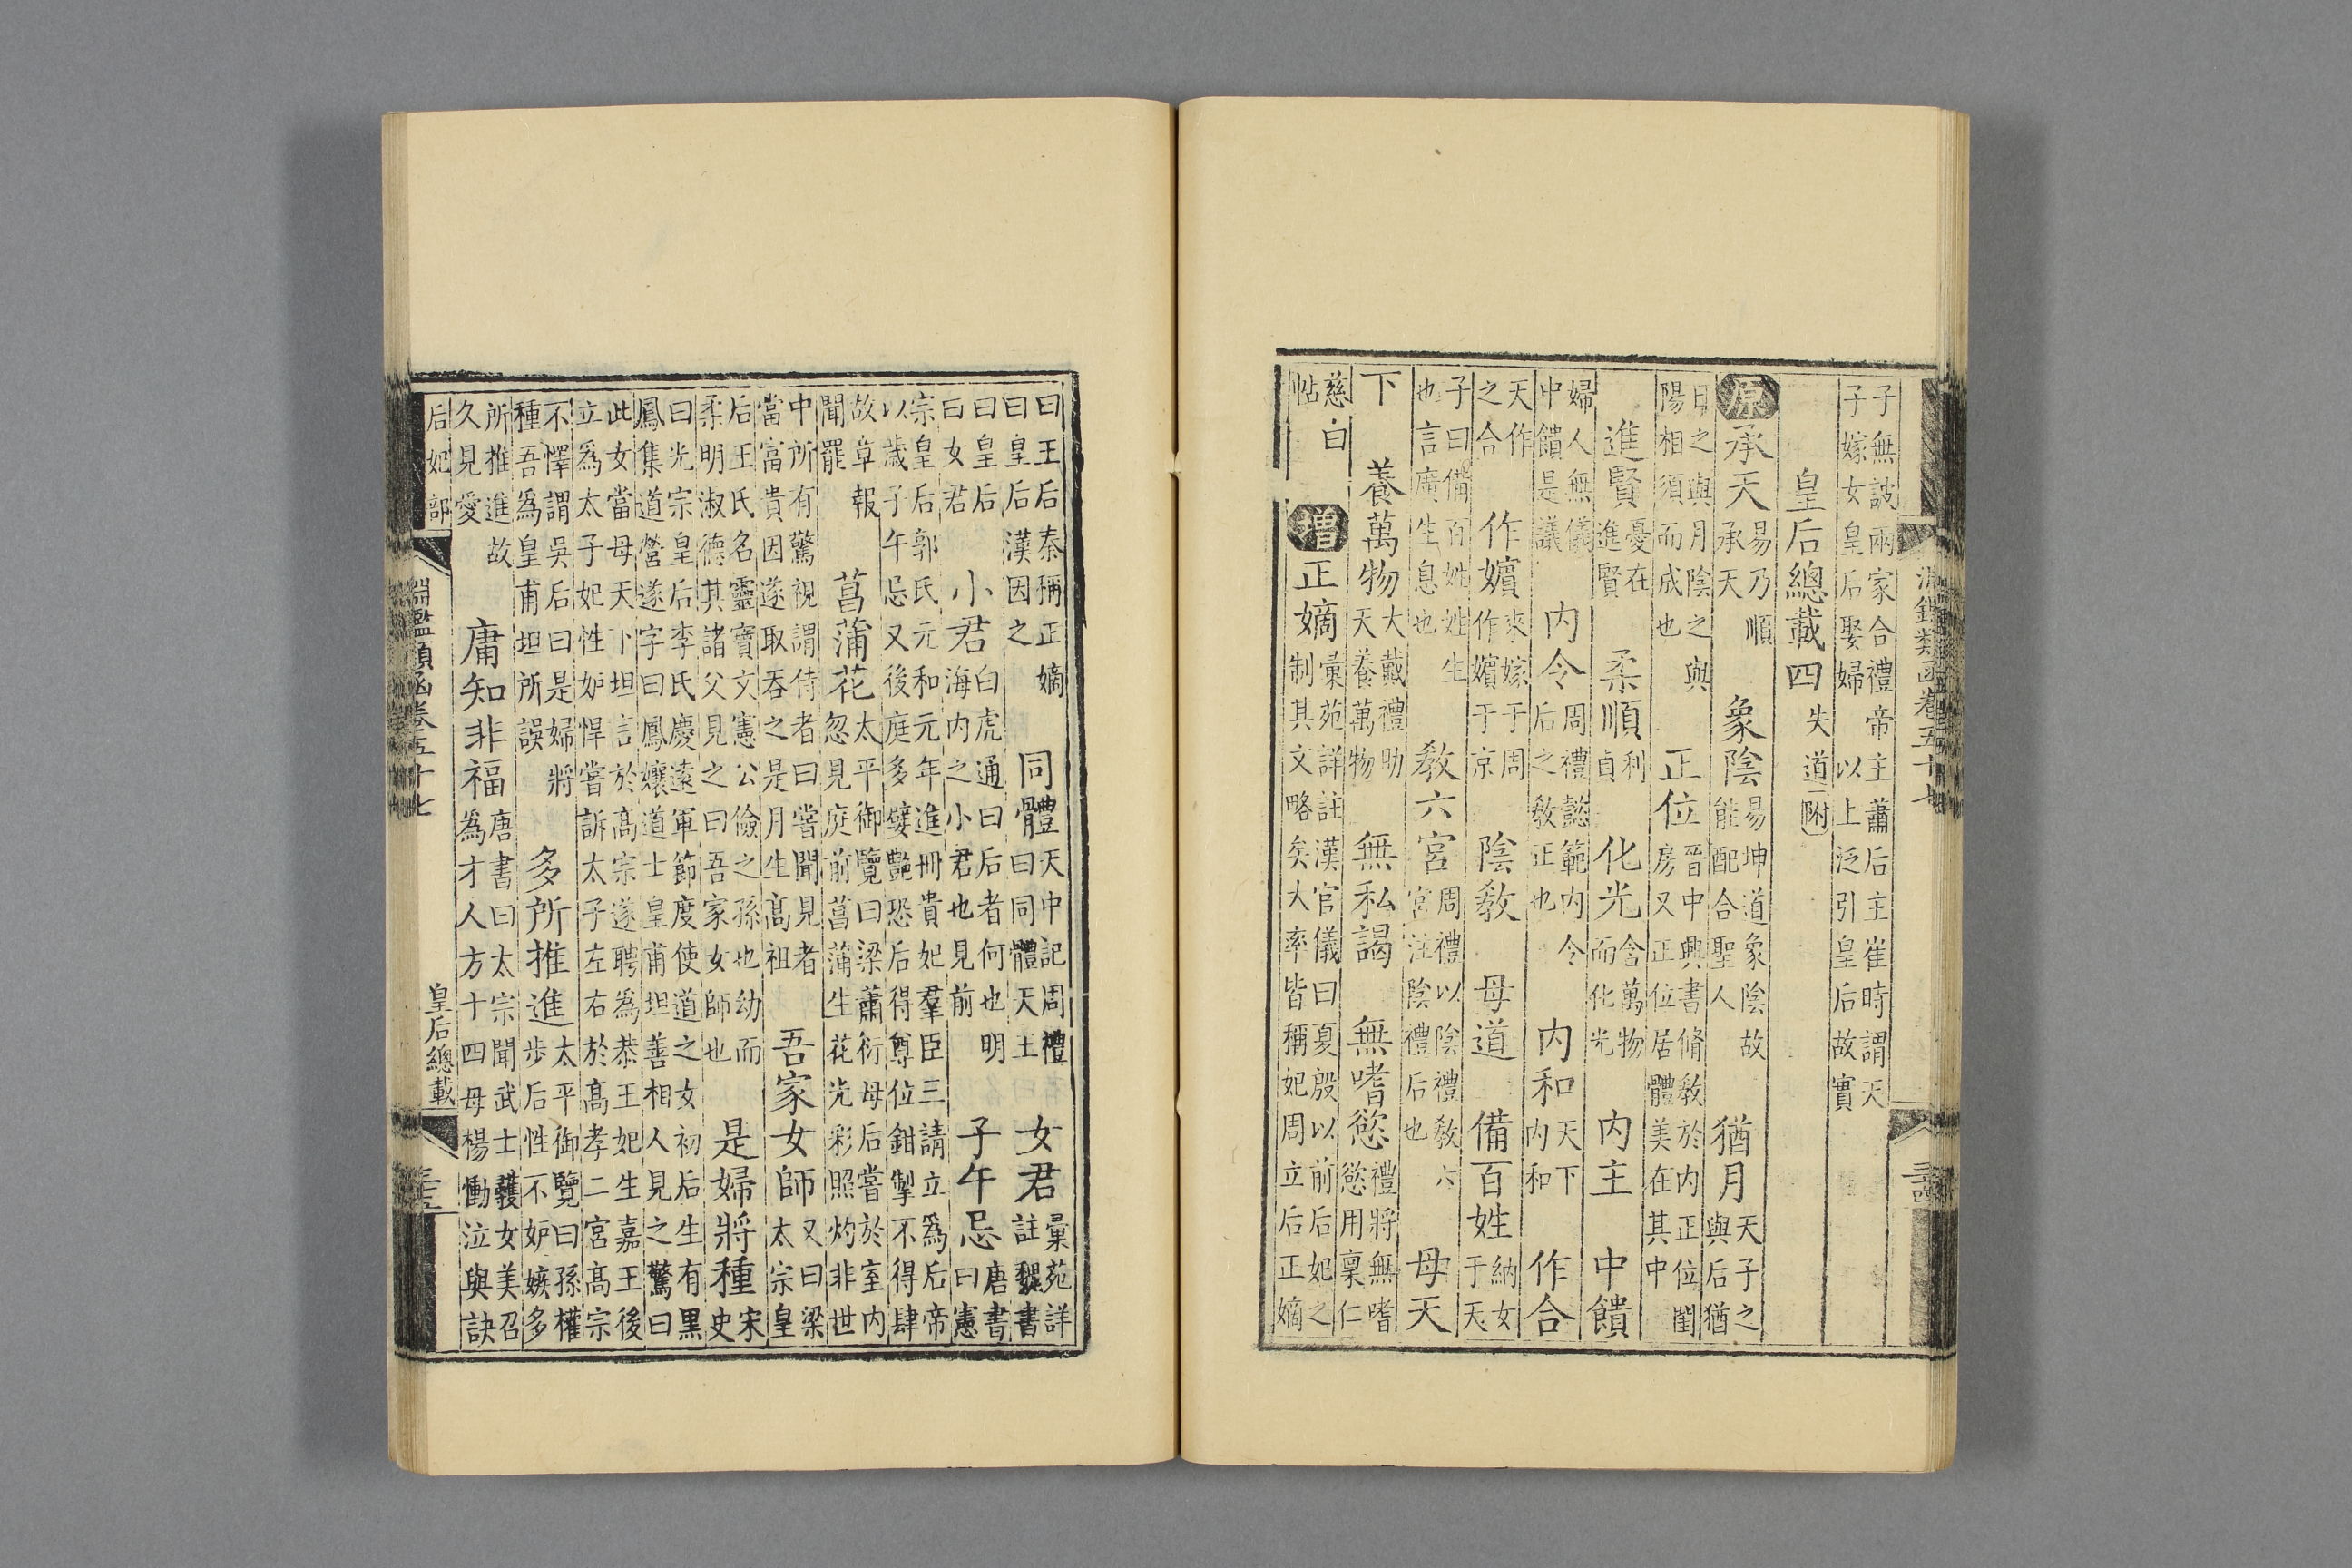 子無詖兩家合禮帝主蕭后主崔時謂天
子嫁女皇后娶婦以上泛引皇后故實
皇后總載四失道附
原承天易乃順承天象陰易坤道象陰故能配合聖人猶月天子之與后猶
日之與月陰之與陽相須而成也正位晉中興書脩教於内正位閨房又正位居體美在其中
進賢憂在進賢柔順利貞化光含萬物而化光内主中饋
婦人無儀中饋是議内令周禮懿範内令后之敎正也内和天下内和作合
天作之合作嬪來嫁于周作嬪于京陰敎母道備百姓納女于天
子曰備百姓姓生也言廣生息也敎六宮周禮以陰禮敎六宮注陰禮后也母天
下養萬物大戴禮助天養萬物無私謁無嗜慾禮將無嗜慾用稟仁
慈白帖增正嫡彙苑詳註漢官儀曰夏殷以前后妃之制其文略矣大率皆稱妃周立后正嫡
淵鑑類函卷五十七
曰王后秦稱正嫡曰皇后漢因之同體天中記周禮曰同體天王女君彙苑詳註魏書
曰皇后曰女君小君白虎通曰后者何也明海内之小君也見前子午忌唐書曰憲
宗皇后郭氏元和元年進冊貴妃羣臣三請立爲后帝以歲子午忌又後庭多嬖艷恐后得尊位鉗掣不得肆
故章報聞罷菖蒲花太平御覽曰梁蕭衍母后嘗於室内忽見庭前菖蒲生花光彩照灼非世
中所有驚視謂侍者曰嘗聞見者當富貴因遂取吞之是月生髙祖吾家女師又曰梁太宗皇
后王氏名靈寶文憲公儉之孫也幼而柔明淑德其諸父見之曰吾家女師也是婦將種宋史
曰光宗皇后李氏慶遠軍節度使道之女初后生有黒鳳集道營遂字曰鳳孃道士皇甫坦善相人見之驚曰
此女當母天下坦言於髙宗遂聘為恭王妃生嘉王後立爲太子妃性妒悍嘗訴太子左右於髙孝二宮髙宗
不懌謂吳后曰是婦將種吾爲皇甫坦所誤多所推進太平御覽曰孫權步后性不妒嫉多
所推進故久見愛庸知非福唐書曰太宗聞武士彠女美召為才人方十四母楊慟泣與訣
后妃部
淵鑑類函卷五十七
皇后總載